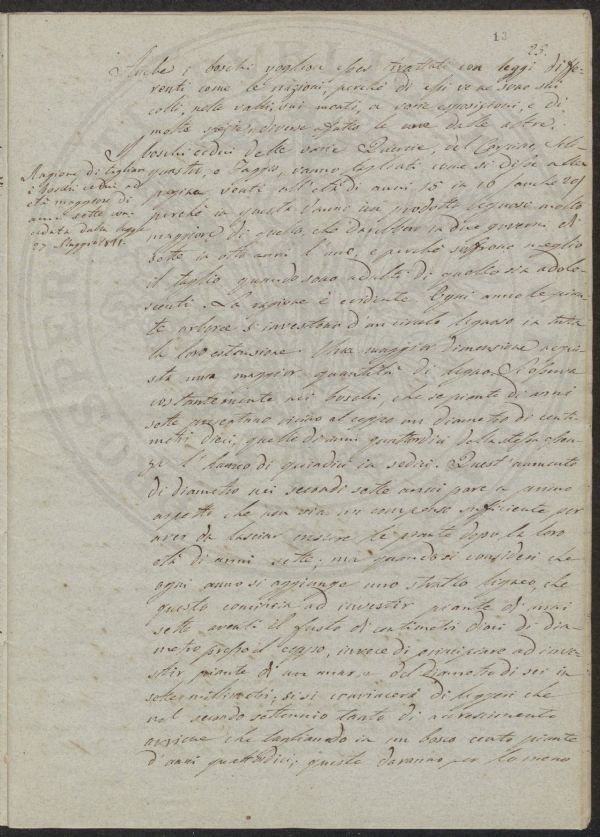 13
25.
Anche i boschi voglion esser trattati con leggi diffe-
renti come le nazioni, perchè di essi ve ne sono sui
colli, nelle valli, sui monti, a varie esposizioni, e di
molte specie diverse affatto le une dalle altre.
boschi cedui delle varie Quercie, del Carpino,
e Faggio, vanno tagliati come si disse alla
pagina venti all'età di anni 15 in 16 anche 20,
perchè in questa danno un prodotto legnoso molto
maggiore di quello, che darebbero in due governi di
sette in otto anni l'uno, e perchè soffrono meglio
il taglio quando sono adulti di quello sia adole-
scenti. La ragione è evidente. Ogni anno le pian-
te arboree s'investono d'un circolo legnoso in tutta
la loro estensione. Una maggior dimensione acqui-
sta una maggior quantità di legno. Si osserva
costantemente nei boschi, che se piante di anni
sette presentano vicino al ceppo un diametro di centi-
metri dieci, quelle di anni quattordici dalla stessa
l'hanno di quindici in sedici. Quest'aumento
di diametro nei secondi sette anni pare a primo
aspetto che non sia un compenso sufficiente per
aver da lasciar crescere le piante dopo la loro
età di anni sette; ma quando si consideri che
ogni anno si aggiunge uno stratto ligneo, che
questo comincia ad investir piante di anni
sette aventi il fusto di centimetri dieci di dia-
metro presso il ceppo, invece di principiare ad inve-
stir piante di un anno, e del diametro di sei in
sette millimetri, si si convincerà di leggeri che
nel secondo settennio tanto di accrescimento
avviene che tagliando in un bosco cento piante
d'anni quattordici, queste daranno per lo meno
Ragioni di tagliar
i boschi cedui ad
età maggiore di
anni sette
dalla legge
27 Maggio 1811.